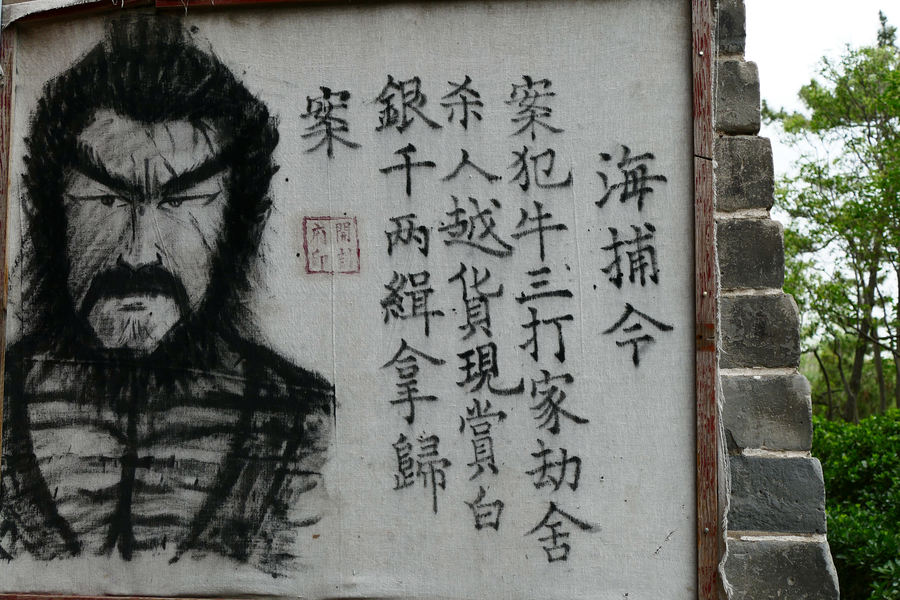 海捕令
案犯牛三打家劫舍
杀人越货現賞白
銀千两缉拿歸
案